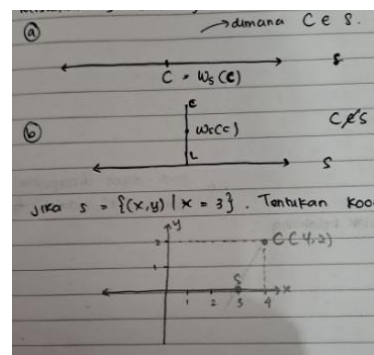 (a) → dimana C ∈ S.
S
C = Ws(C)
C
(b) Ws(C) C ∉ S
L
S
Jika S = {(x,y) | x = 3}. Tentukan Koo
y
C(4,2)
1
S
1 2 3 4 x